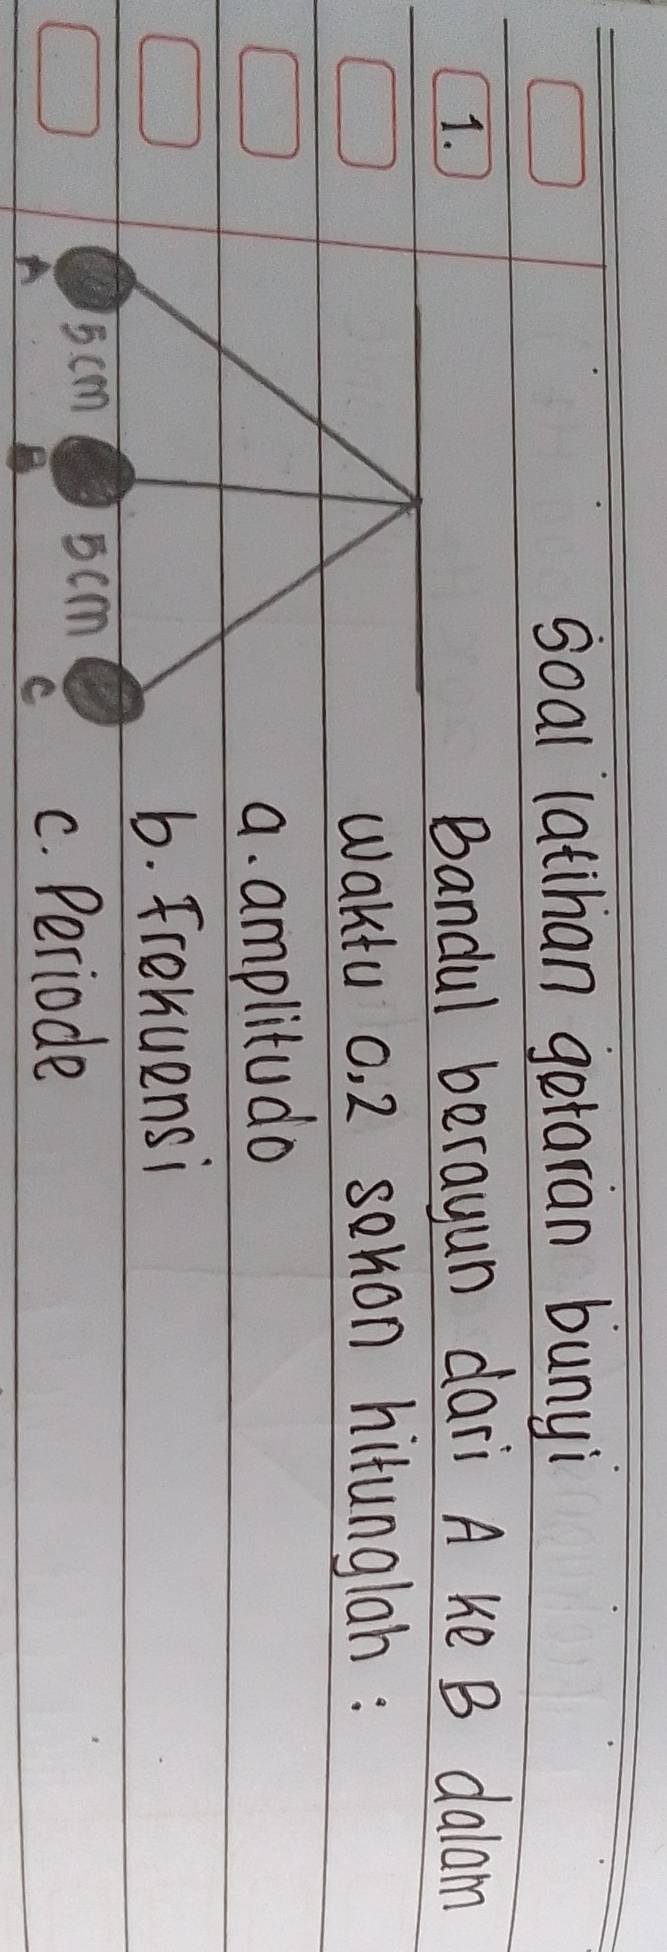 Soal latihan getaran bunyi
1. Bandul berayun dari A ke B dalam
waktu 0,2 sekon hitunglah :
a. amplitudo
b. frekuensi
c. Periode
5cm 5cm
A B C